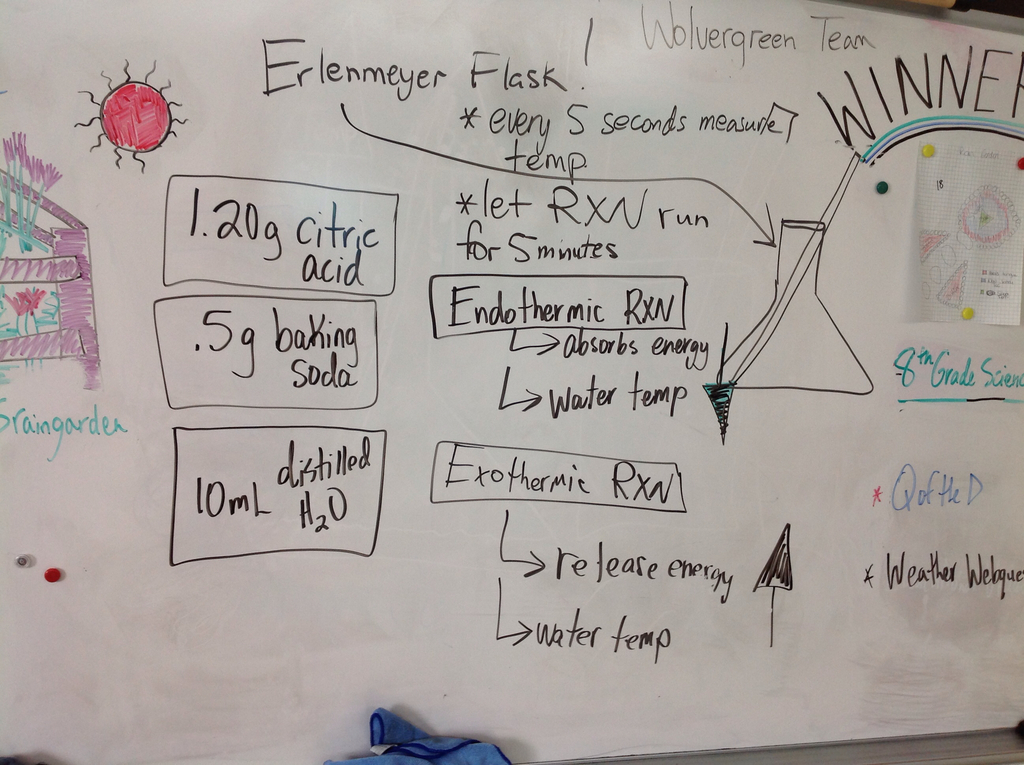 Wolvergreen Team
Erlenmeyer Flask.
WINNE
* every 5 seconds measure
temp
* let RXN run
for 5 minutes
1.20g citric
acid
.5g baking
soda
10mL distilled
H₂O
Endothermic RXN
absorbs energy
water temp
Exothermic RXN
release energy
water temp
8th Grade Scienc
* Q of the D
* Weather Webque
raingarden
18